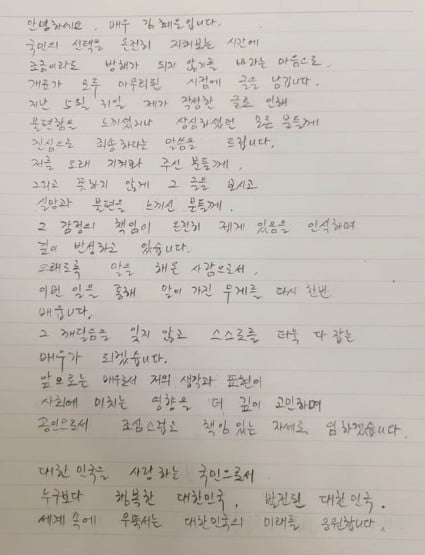 안녕하세요. 배우 김혜은입니다.
국민의 선택을 온전히 지켜보는 시간에
조금이라도 방해가 되지 않기를 바라는 마음으로,
개표가 모두 마무리된 시점에 글을 남깁니다.
지난 5월 31일 제가 작성한 글로 인해
불편함을 느끼셨거나 상심하셨던 모든 분들께
진심으로 죄송하다는 말씀을 드립니다.
저를 오래 지켜봐 주신 분들께,
그리고 뜻하지 않게 그 글을 보시고
실망과 불편을 느끼신 분들께.
그 감정의 책임이 온전히 제게 있음을 인식하며
깊이 반성하고 있습니다.
오래도록 말을 해온 사람으로서,
이번 일을 통해 말이 가진 무게를 다시 한번
배웁니다.
그 깨달음을 잊지 않고 스스로를 더욱 다잡는
배우가 되겠습니다.
앞으로는 배우로서 저의 생각과 표현이
사회에 미치는 영향을 더 깊이 고민하며
공인으로서 조심스럽고 책임있는 자세로 임하겠습니다.
대한민국을 사랑하는 국민으로서
누구보다 행복한 대한민국. 발전된 대한민국.
세계 속에 우뚝서는 대한민국의 미래를 응원합니다.